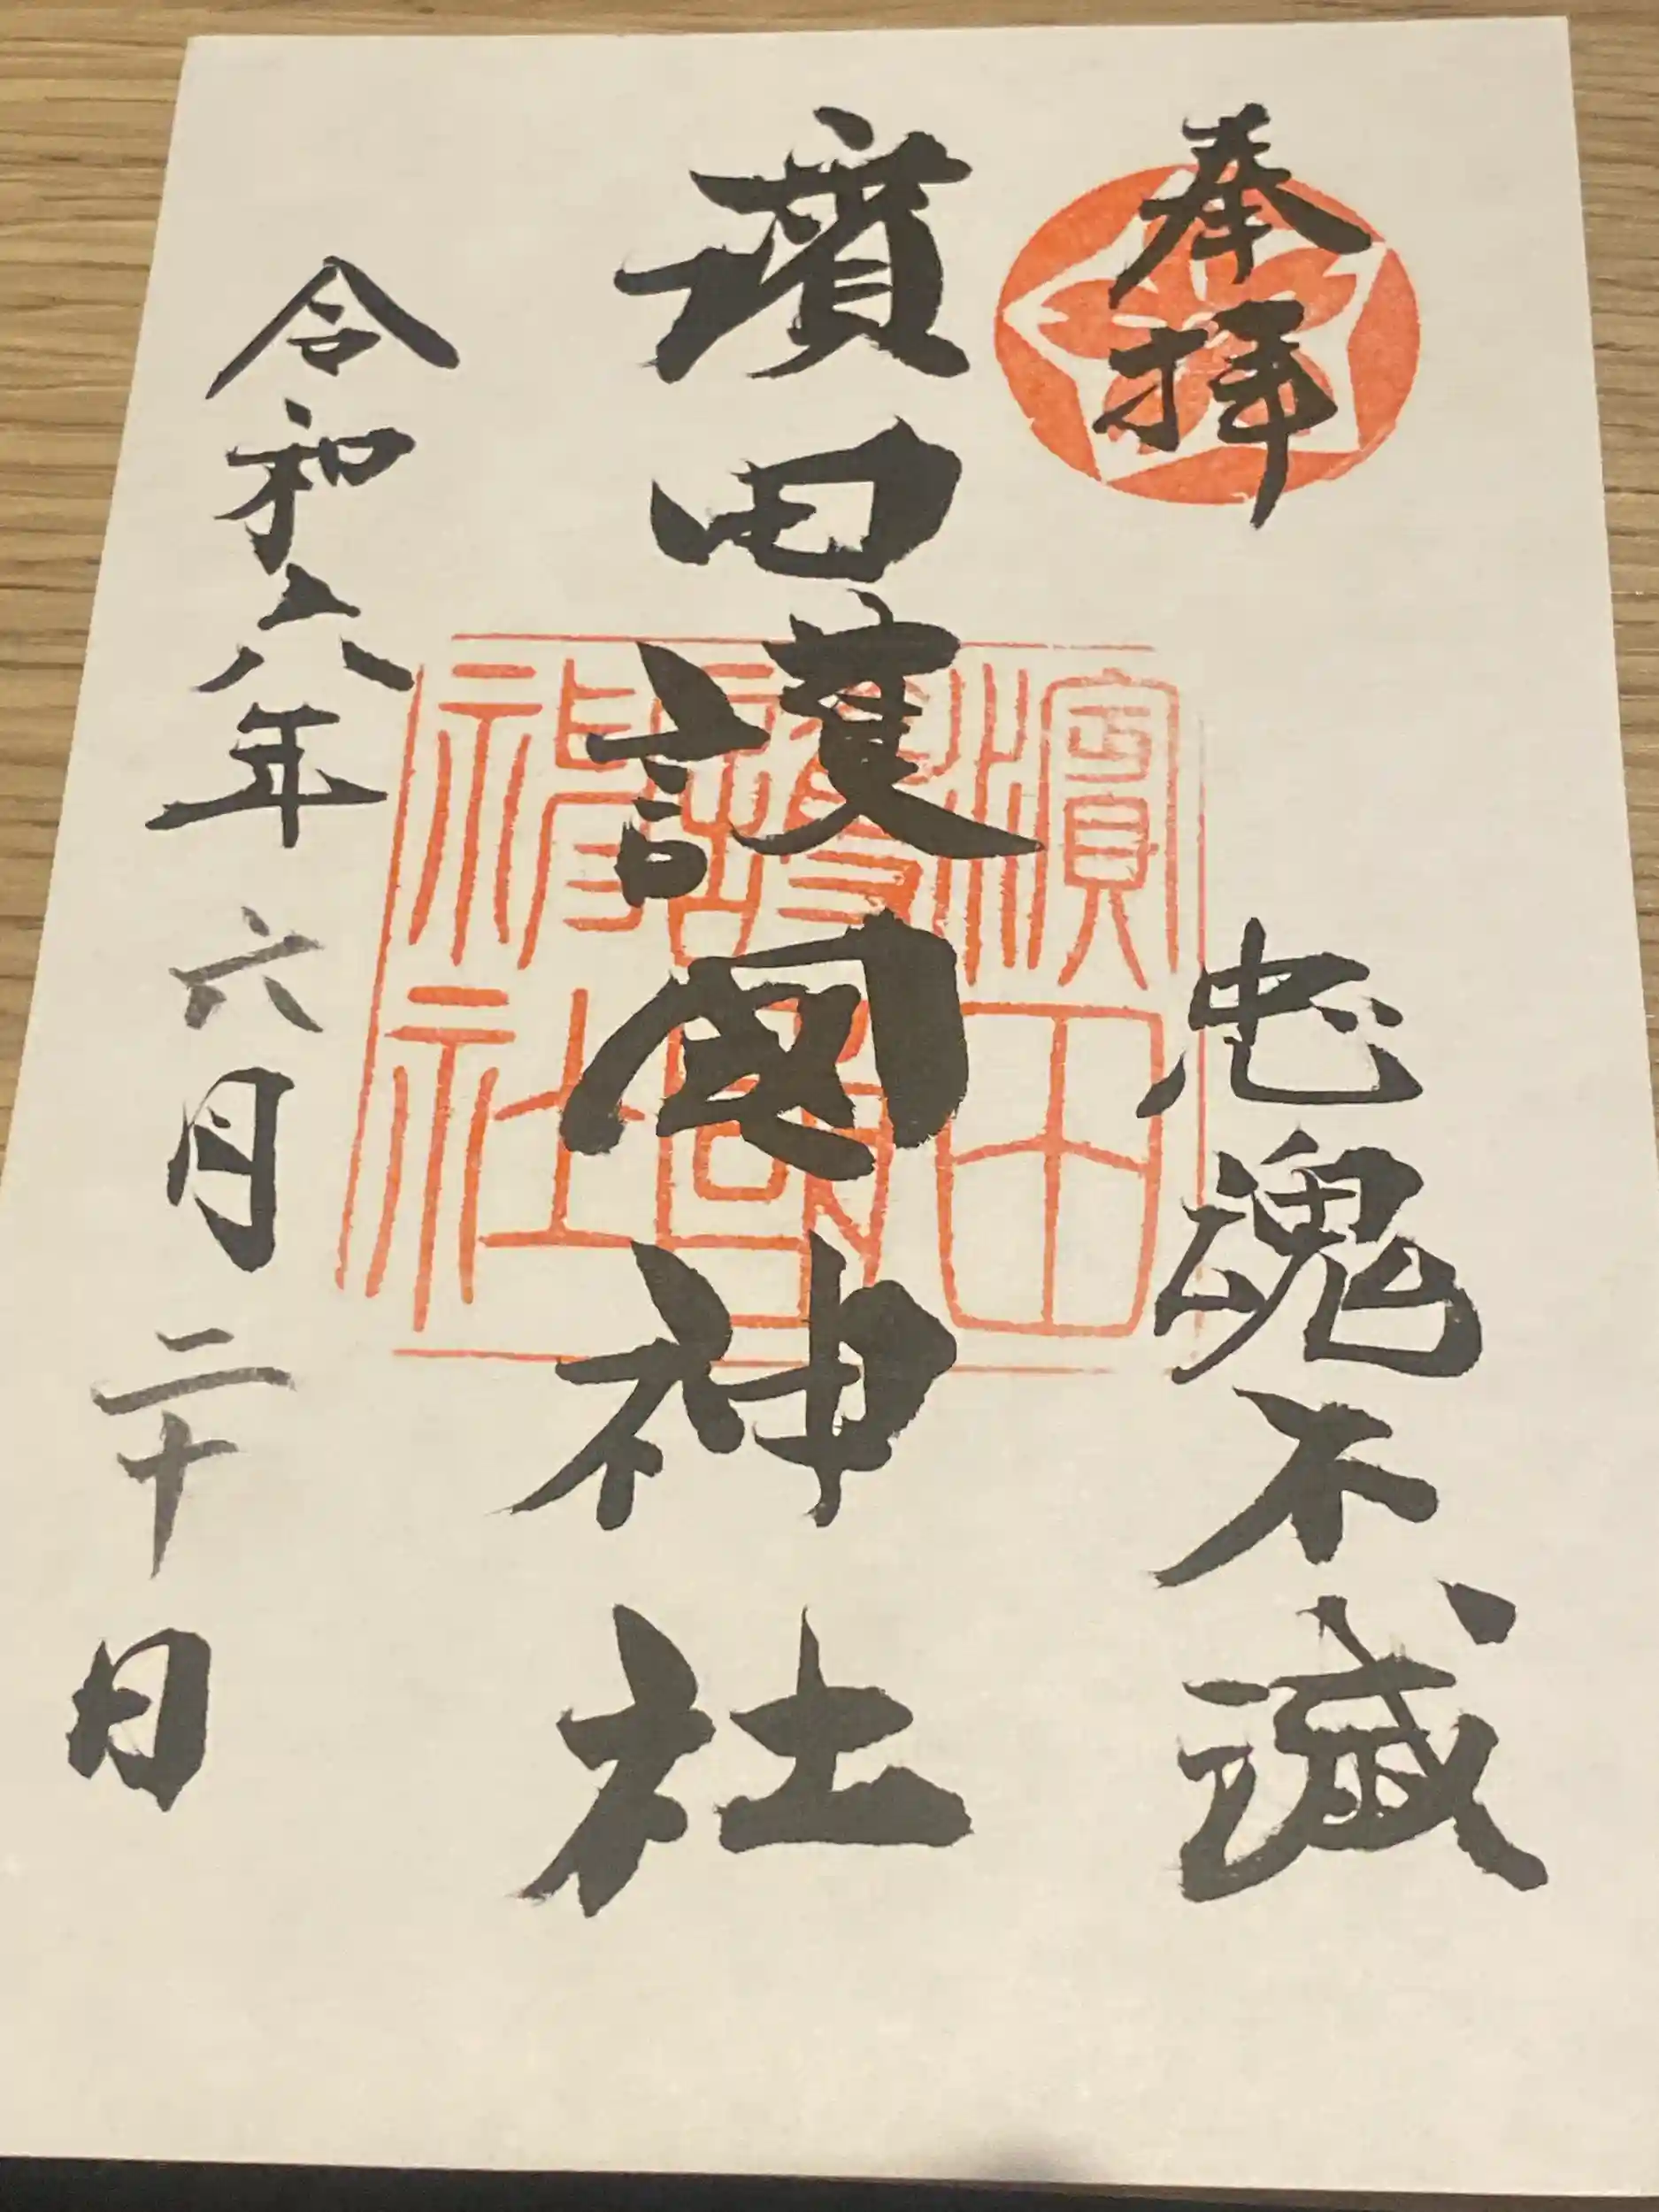 奉拝
忠魂不滅
濱田護國神社
令和六年六月二十日
濱田
護國
神社